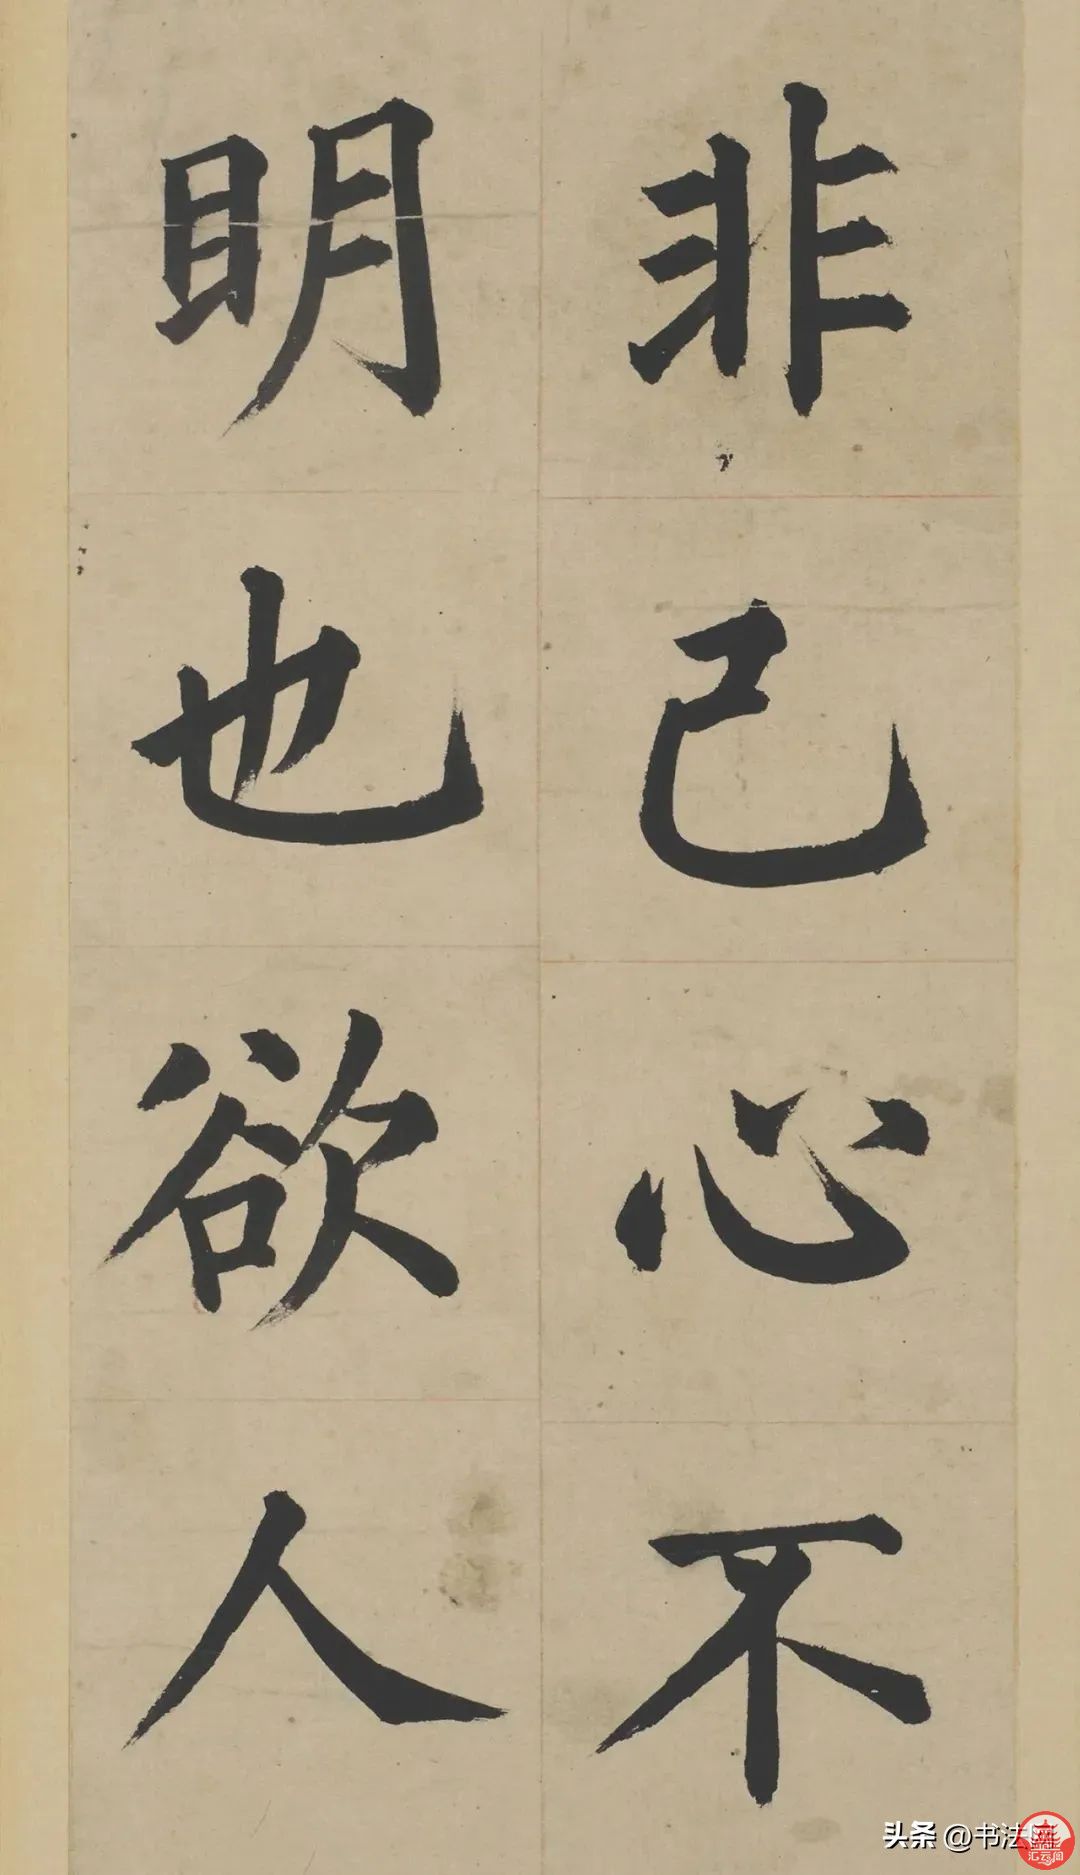 非己心不
明也欲人
头条 @书法
汇云阁